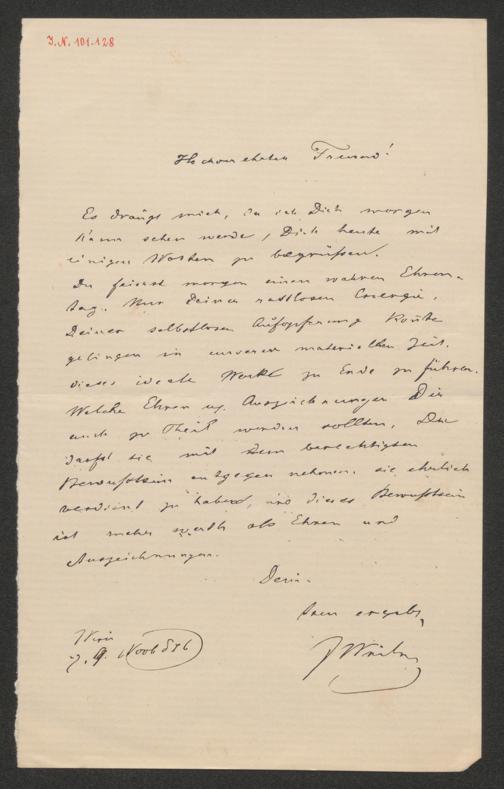 J.N. 101.128
Hochverehrter Freund!
Es drängt mich, da ich Dich morgen
kaum sehen werde, Dich heute mit
einigen Worten zu begrüßen.
Du feierst morgen einen wahren Ehren-
tag. Nur Deiner rastlosen Energie,
Deiner selbstlosen Aufopferung konnte
gelingen in unserer materiellen Zeit,
dieses ideale Werk zu Ende zu führen.
Welche Ehren u. Auszeichnungen Dir
auch zu Theil werden sollten, Du
darfst sie mit dem berechtigten
Bewußtsein entgegen nehmen, sie ehrlich
verdient zu haben, und dieses Bewußtsein
ist mehr werth als Ehren und
Auszeichnungen.
Dein
treu ergeb.
Wien